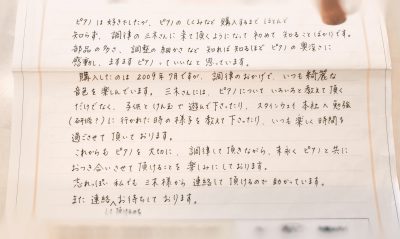 ピアノは好きでしたが、ピアノのしくみなど購入するまでほとんど
知らず、調律の三木さんに来て頂くようになって初めて知ることばかりです。
部品の多さ、調整の細かさなど知れば知るほどピアノの奥深さに
感動し、ますますピアノっていいなと思っています。
購入したのは2009年7月ですが、調律のおかげで、いつも綺麗な
音色を楽しんでいます。三木さんには、ピアノについていろいろと教えて頂く
だけでなく、子供とけん玉で遊んで下さったり、スタインウェイ本社へ勉強
(研修?)に行かれた時の様子を教えて下さったり、いつも楽しい時間を
過ごさせて頂いております。
これからもピアノを大切に、調律して頂きながら、末永くピアノと共に
おつき合いさせて頂けることを楽しみにしております。
忘れっぽい私でも三木様から連絡して頂けるので助かっています。
また連絡お待ちしております。
して頂けるのを